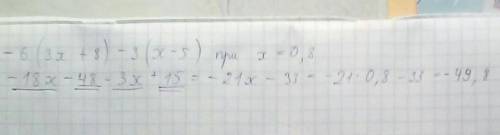 -6(3x+8)-3(x-5) при x=0,8
-18x-48-3x+15=-21x-33=-21·0,8-33=-49,8